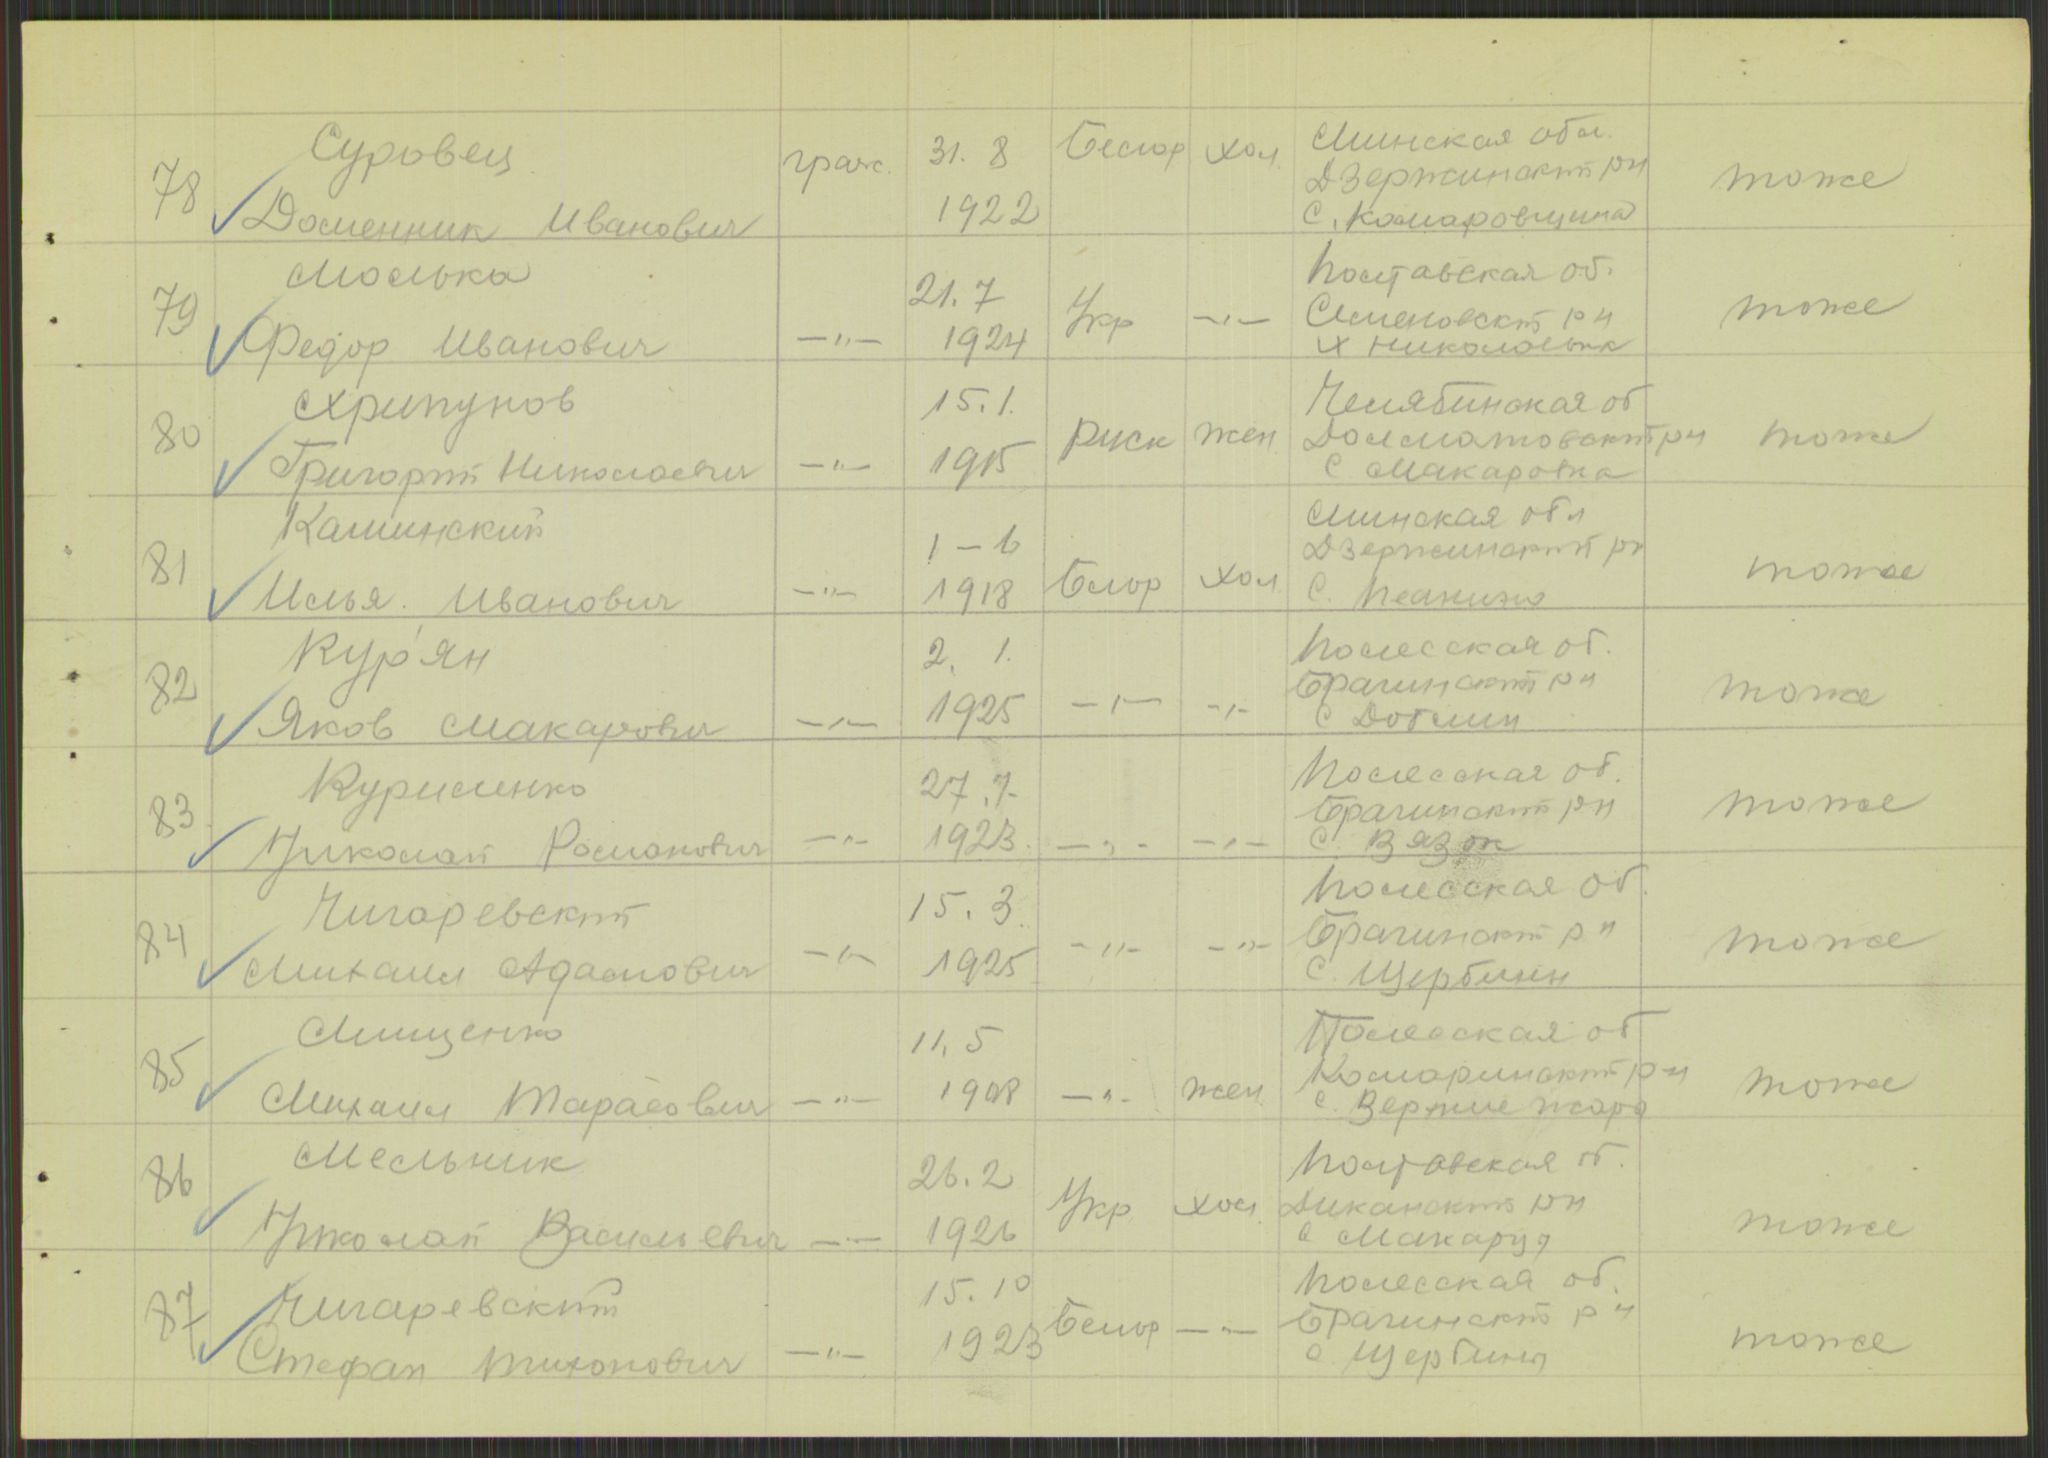 78 Суровец Доменник Иванович граж. 31. 8 1922 Белор хол. Минская обл. Дзержинский рн с. Комаровщина тоже
79 Молька Федор Иванович —"— 21. 7 1924 Укр —"— Полтавская об. Семеновский рн х тоже
80 Хрипунов Григорий Николаевич —"— 15. 1. 1915 Руск жен. Челябинская об Долматовский рн с Макаровка тоже
81 Каминский Илья Иванович —"— 1 – 6 1918 Блор хол Минская обл Дзержинский рн с. тоже
82 Кур'ян Яков Макарович —"— 2. 1. 1925 —"— —"— Полесская об. Брагинский рн с тоже
83 Николай Романович —"— 27. 7. 1923. —"— —"— Полесская об. Брагинский рн с. Вязок тоже
84 Чигаревский Михаил Адамович —"— 15. 3. 1925 —"— —"— Полесская об. Брагинский рн с. тоже
85 Мищенко Михаил Тарасович —"— 11. 5 1908 —"— жен. Полесская об Комаринский рн с. тоже
86 Мельник Николай Васильевич —"— 26. 2 1926 Укр хол. Полтавская об. Диканский рн с тоже
87 Чигаревский Стефан Тихонович —"— 15. 10 1923 Белор —"— Полесская об. Брагинский рн с. тоже